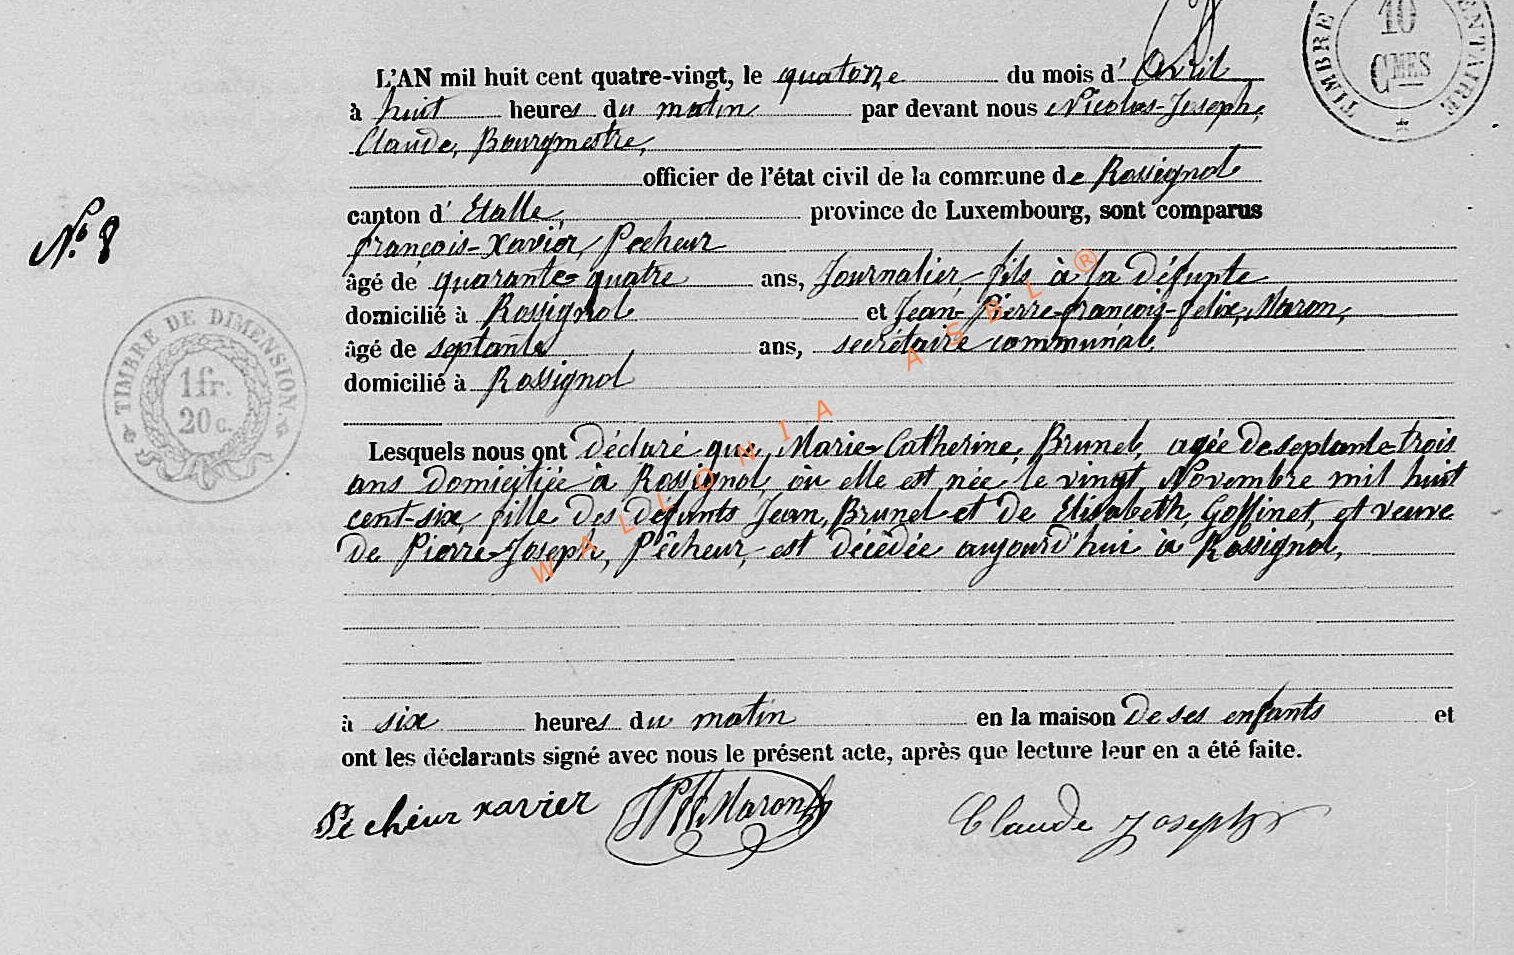 TIMBRE
10
CMES
ENTAIRE
L'AN mil huit cent quatre-vingt, le quatorze du mois d' Avril
à huit heures du matin par devant nous Nicolas-Joseph,
Claude, Bourgmestre,
officier de l'état civil de la commune de Rossignol
canton d' Etalle, province de Luxembourg, sont comparus
françois-xavier, Pecheur
âgé de quarante-quatre ans, Journalier, fils à la défunte
domicilié à Rossignol et Jean-Pierre-françois-felix, Maron,
âgé de septante ans, secrétaire communal,
domicilié à Rossignol
N° 8
TIMBRE DE DIMENSION.
1 fr.
20 c.
Lesquels nous ont déclaré que, Marie-Catherine, Brunel, agée de septante trois
ans domiciliée à Rossignol, où elle est née le vingt Novembre mil huit
cent-six, fille des défunts Jean, Brunel et de Elisabeth, Goffinet, et veuve
de Pierre-Joseph, Pêcheur, est décédée aujourd'hui à Rossignol,
à six heures du matin en la maison de ses enfants et
ont les déclarants signé avec nous le présent acte, après que lecture leur en a été faite.
Pecheur xavier Maron Claude Joseph
WALLONIA ASBL ®